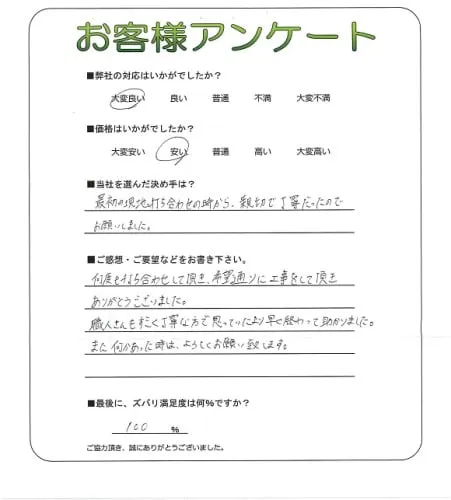 お客様アンケート
■弊社の対応はいかがでしたか?
大変良い 良い 普通 不満 大変不満
■価格はいかがでしたか?
大変安い 安い 普通 高い 大変高い
■当社を選んだ決め手は?
最初の現地打ち合わせの時から、親切で丁寧だったので
お願いしました。
■ご感想・ご要望などをお書き下さい。
何度も打ち合わせして頂き、希望通りに工事をして頂き
ありがとうございました。
職人さんもすごく丁寧な方で思っていたより早く終わって助かりました。
また何かあった時は、よろしくお願い致します。
■最後に、ズバリ満足度は何%ですか?
100 %
ご協力頂き、誠にありがとうございました。